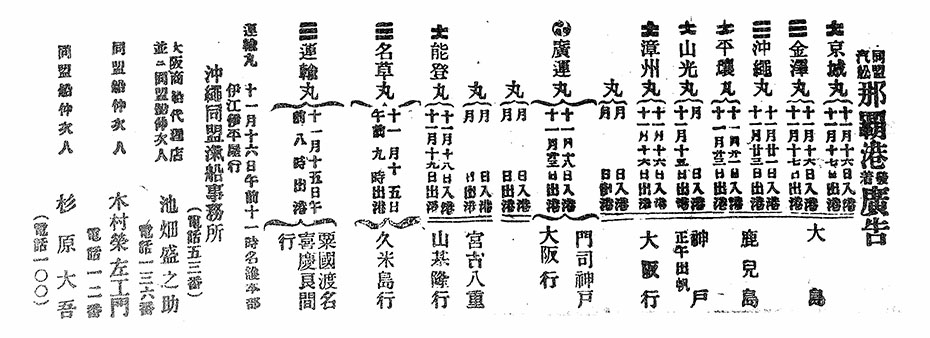 同盟汽船 那覇港 發着 廣告
京城丸 十一月十六日入港 十一月十七日出港
金澤丸 十一月十六日入港 十一月十七日出港 大島
沖繩丸 十一月廿一日入港 十一月廿三日出港 鹿兒島
平壤丸 十一月廿一日入港 十一月廿三日出港
山光丸 月 日入港 日出港 神戸 正午出帆
漳州丸 十一月十六日入港 十一月十六日出港 大阪行
丸 月 日入港 日出港
廣運丸 日入港 日出港 門司神戸 大阪行
丸 月 日入港 日出港
丸 月 日入港 日出港 宮古八重
能登丸 十一月十八日入港 十一月十九日出港 山基隆行
名草丸 十一月十五日 午前九時出港 久米島行
運輸丸 十一月十五日午前八時出港 粟國渡名喜慶良間行
運輸丸 十一月十六日午前十一時名護本部
伊江伊平屋行
沖繩同盟滊船事務所
(電話五三番)
大阪商船代理店 並ニ同盟船仲次人 池畑盛之助
電話一三六番
同盟船仲次人 木村榮左工門
電話一二番
同盟船仲次人 杉原大吾
(電話一〇〇)